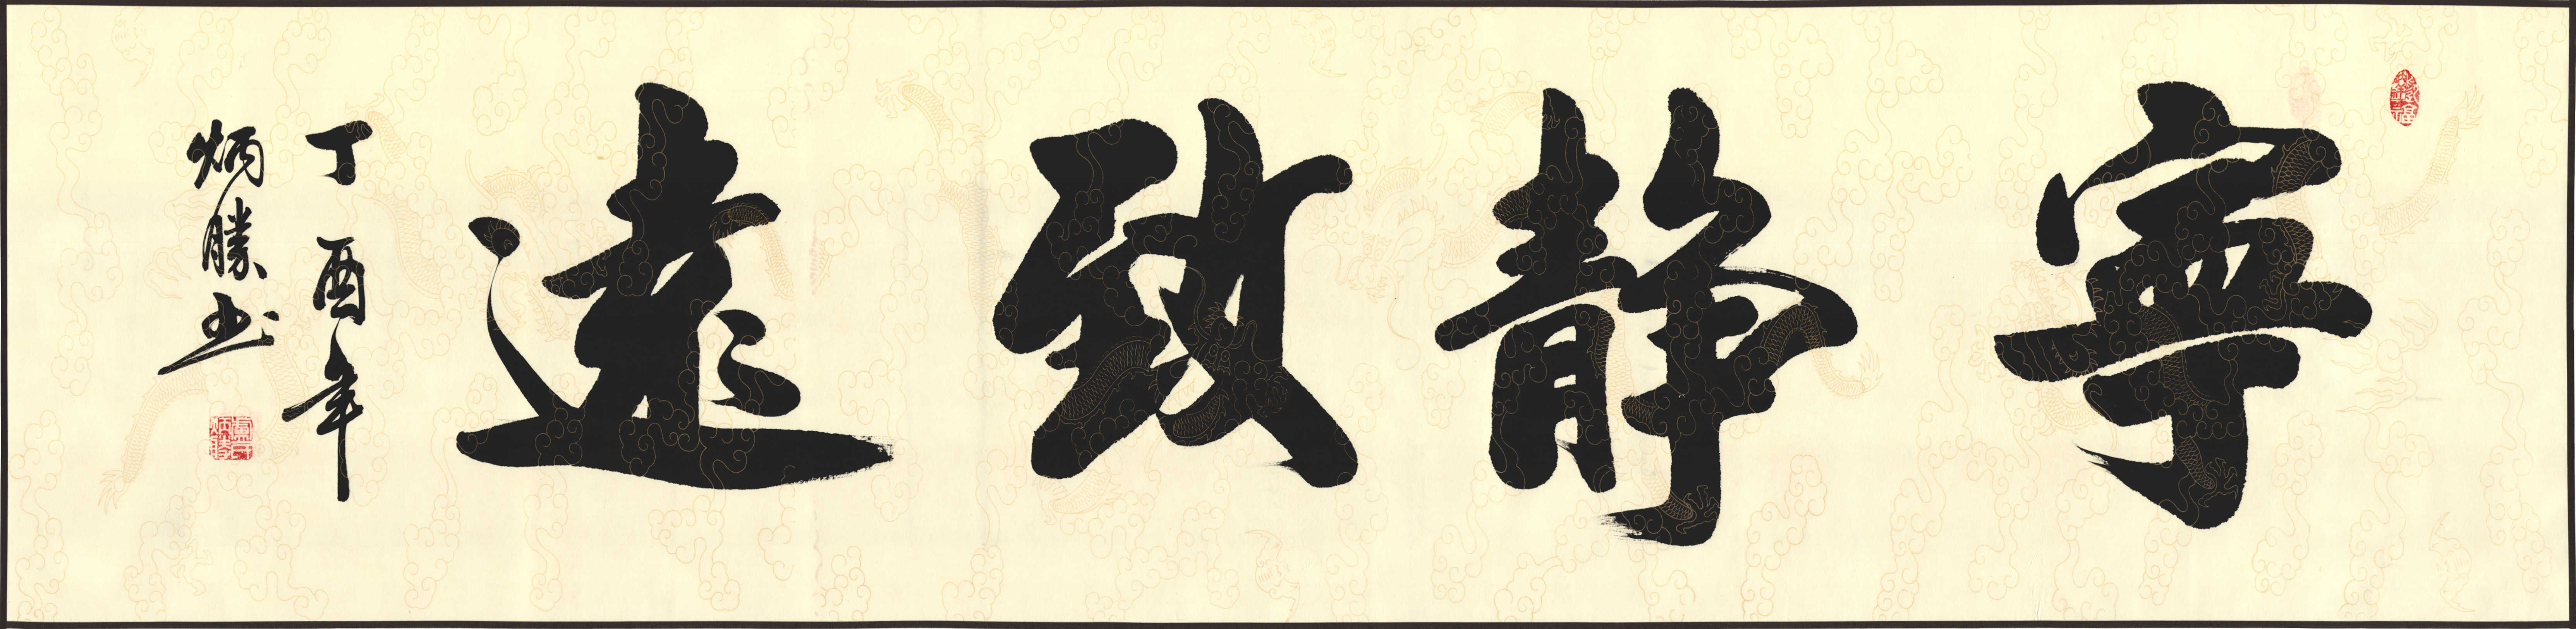 寧靜致遠
丁酉年
炳勝书